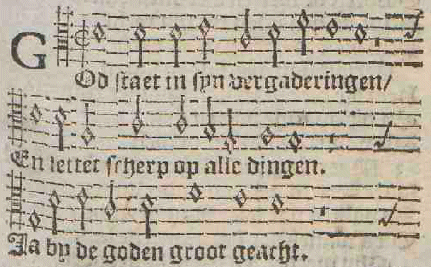 GOd staet in syn vergaderingen/
En lettet scherp op alle dingen.
Ja by de goden groot geacht.